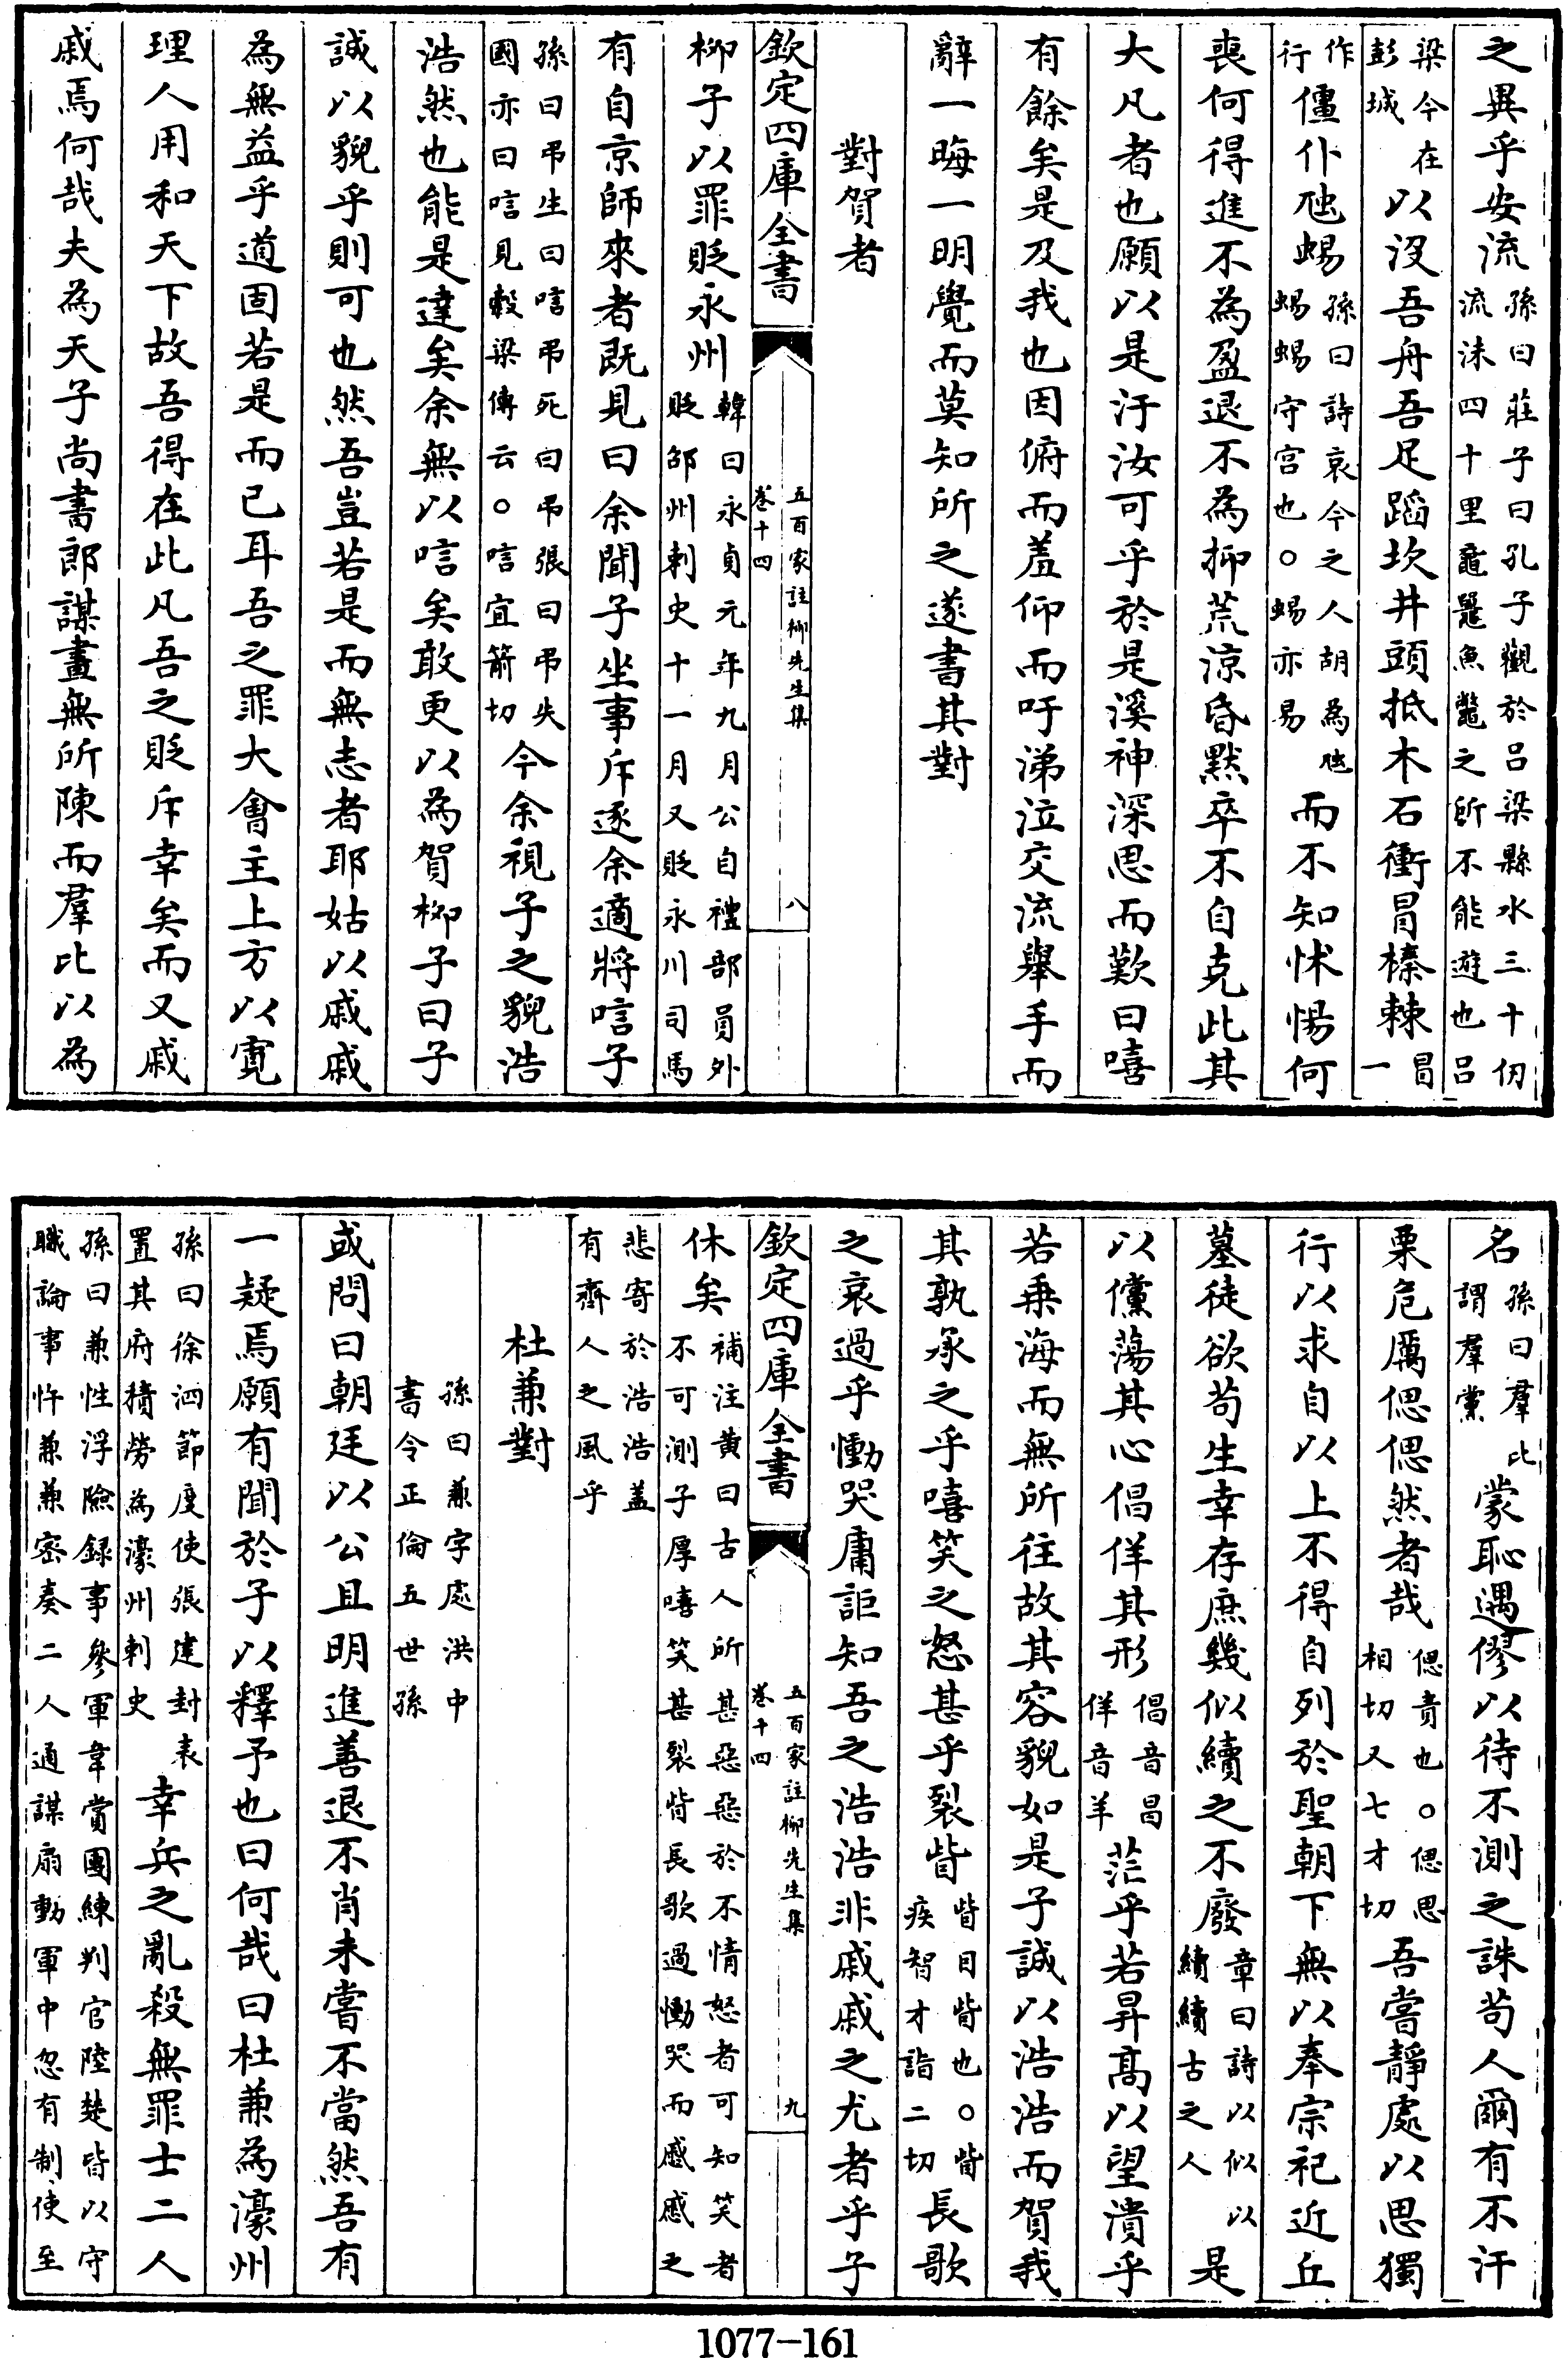 之異乎安流孫曰莊子曰孔子觀於呂梁縣水三十仞流沫四十里黿鼉魚鼈之所不能遊也呂
梁今在彭城以没吾舟吾足蹈坎井頭抵木石衝冒榛棘冒一
作行僵仆虺蜴孫曰詩哀今之人胡為虺蜴蜴守宫也○蜴亦易而不知怵惕何
喪何得進不為盈退不為抑荒涼昏黙卒不自克此其
大凡者也願以是汙汝可乎於是溪神深思而歎曰嘻
有餘矣是及我也因俯而羞仰而吁涕泣交流舉手而
辭一晦一明覺而莫知所之遂書其對
對賀者
欽定四庫全書
五百家註柳先生集
卷十四
八
柳子以罪貶永州韓曰永貞元年九月公自禮部員外貶邵州刺史十一月又貶永川司馬
有自京師來者既見曰余聞子坐事斥逐余適將唁子
孫曰弔生曰唁弔死曰弔張曰弔失國亦曰唁見穀梁傳云○唁宜箭切今余視子之貌浩
浩然也能是達矣余無以唁矣敢更以為賀柳子曰子
誠以貌乎則可也然吾豈若是而無志者耶姑以戚戚
為無益乎道固若是而已耳吾之罪大會主上方以寛
理人用和天下故吾得在此凡吾之貶斥幸矣而又戚
戚焉何哉夫為天子尚書郎謀畫無所陳而羣比以為
名孫曰羣比謂羣黨蒙恥遇僇以待不測之誅苟人爾有不汗
栗危厲偲偲然者哉偲責也○偲思相切又七才切吾嘗靜處以思獨
行以求自以上不得自列於聖朝下無以奉宗祀近丘
墓徒欲苟生幸存庶幾似續之不廢章曰詩以似以續續古之人是
以儻蕩其心倡佯其形倡音昌佯音羊茫乎若昇髙以望潰乎
若乗海而無所往故其容貌如是子誠以浩浩而賀我
其孰承之乎嘻笑之怒甚乎裂眥眥目眥也○眥疾智才詣二切長歌
之哀過乎慟哭庸詎知吾之浩浩非戚戚之尤者乎子
欽定四庫全書
五百家註柳先生集
卷十四
九
休矣補注黄曰古人所甚惡惡於不情怒者可知笑者不可測子厚嘻笑甚裂眥長歌過慟哭而慼慼之
悲寄於浩浩盖有齊人之風乎
杜兼對
孫曰兼字處洪中書令正倫五世孫
或問曰朝廷以公且明進善退不肖未嘗不當然吾有
一疑焉願有聞於子以釋予也曰何哉曰杜兼為濠州
孫曰徐泗節度使張建封表置其府積勞為濠州刺史幸兵之亂殺無罪士二人
孫曰兼性浮險録事參軍韋賞團練判官陸楚皆以守職論事忤兼兼密奏二人通謀扇動軍中忽有制使至
1077-161